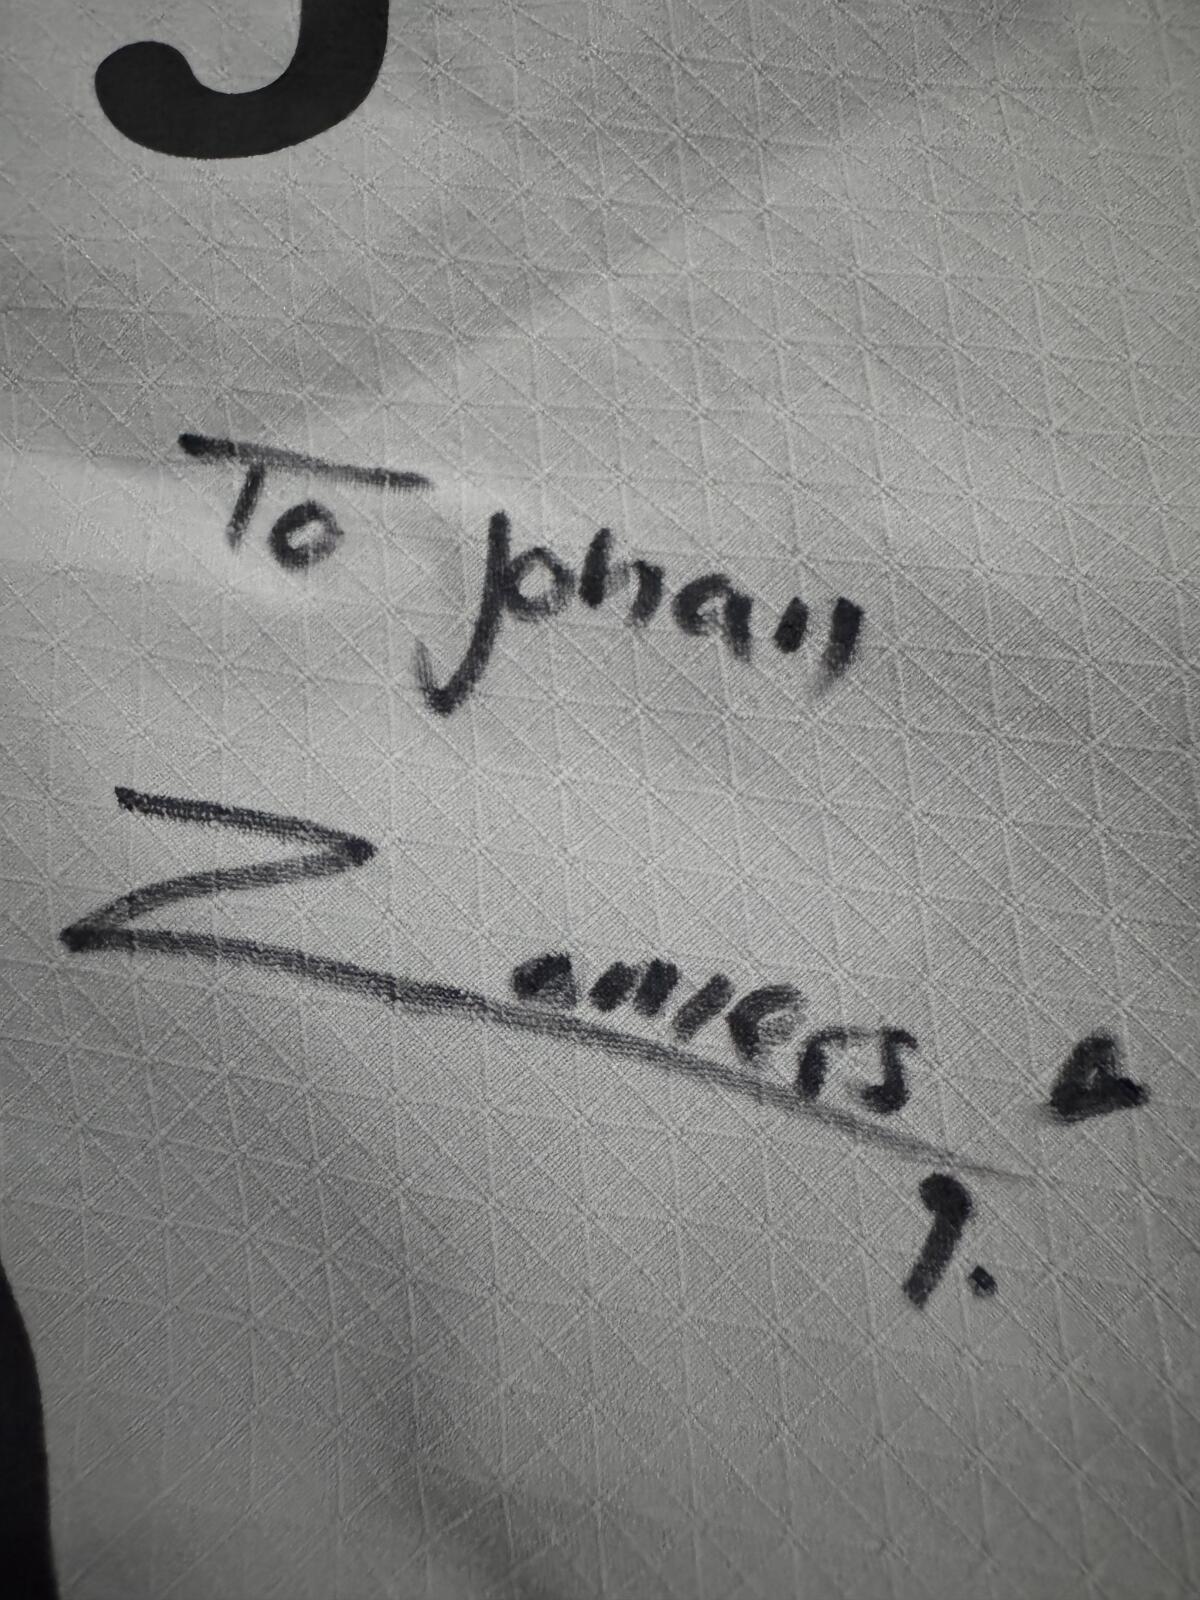 J
To Johan
Zamiers